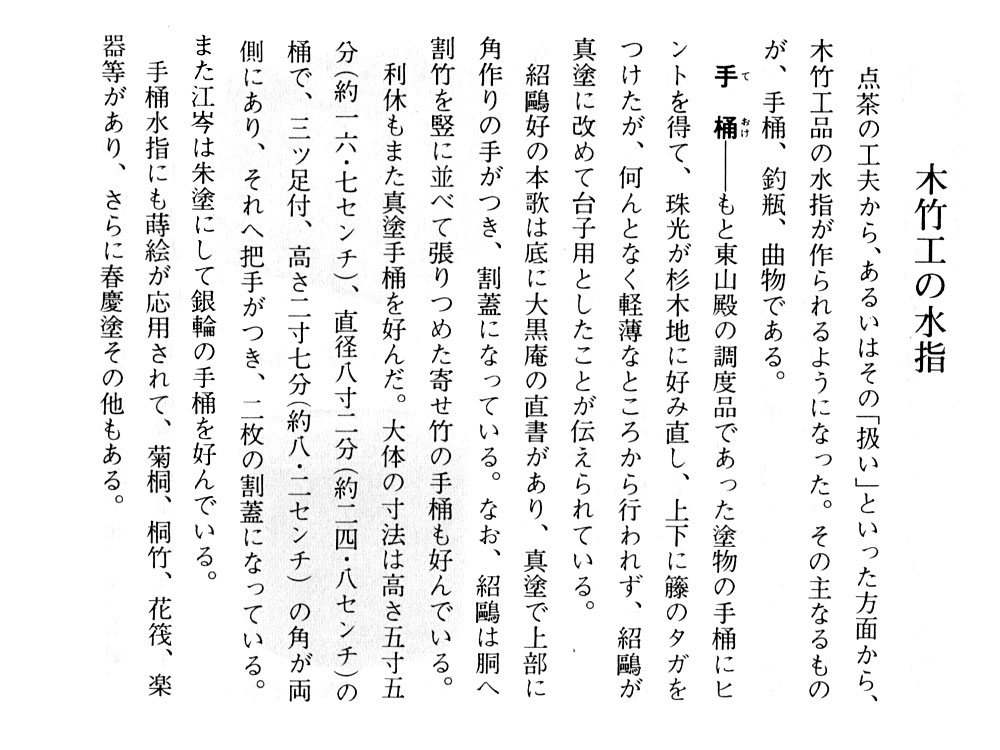 木竹工の水指
点茶の工夫から、あるいはその「扱い」といった方面から、
木竹工品の水指が作られるようになった。その主なるもの
が、手桶、釣瓶、曲物である。
手桶――もと東山殿の調度品であった塗物の手桶にヒ
ントを得て、珠光が杉木地に好み直し、上下に籐のタガを
つけたが、何んとなく軽薄なところから行われず、紹鷗が
真塗に改めて台子用としたことが伝えられている。
紹鷗好の本歌は底に大黒庵の直書があり、真塗で上部に
角作りの手がつき、割蓋になっている。なお、紹鷗は胴へ
割竹を竪に並べて張りつめた寄せ竹の手桶も好んでいる。
利休もまた真塗手桶を好んだ。大体の寸法は高さ五寸五
分(約一六・七センチ)、直径八寸二分(約二四・八センチ)の
桶で、三ツ足付、高さ二寸七分(約八・二センチ)の角が両
側にあり、それへ把手がつき、二枚の割蓋になっている。
また江岑は朱塗にして銀輪の手桶を好んでいる。
手桶水指にも蒔絵が応用されて、菊桐、桐竹、花筏、楽
器等があり、さらに春慶塗その他もある。